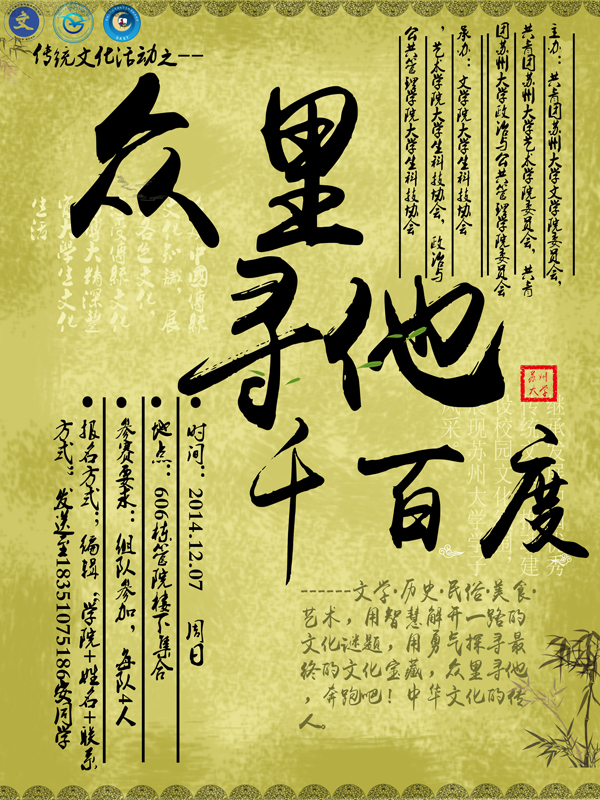 传统文化活动之--
众里
寻他
千百度
主办：共青团苏州大学文学院委员会，
共青团苏州大学艺术学院委员会，共青
团苏州大学政治与公共管理学院委员会
承办：文学院大学生科技协会
，艺术学院大学生科技协会，政治与
公共管理学院大学生科技协会
苏州
大学
时间：2014.12.07 周日
地点：606栋管院楼下集合
参赛要求：组队参加，每队4人
报名方式：编辑“学院+姓名+联系
方式”发送至18351075186安同学
------文学·历史·民俗·美食·
艺术，用智慧解开一路的
文化谜题，用勇气探寻最
终的文化宝藏，众里寻他
，奔跑吧！中华文化的传
人。